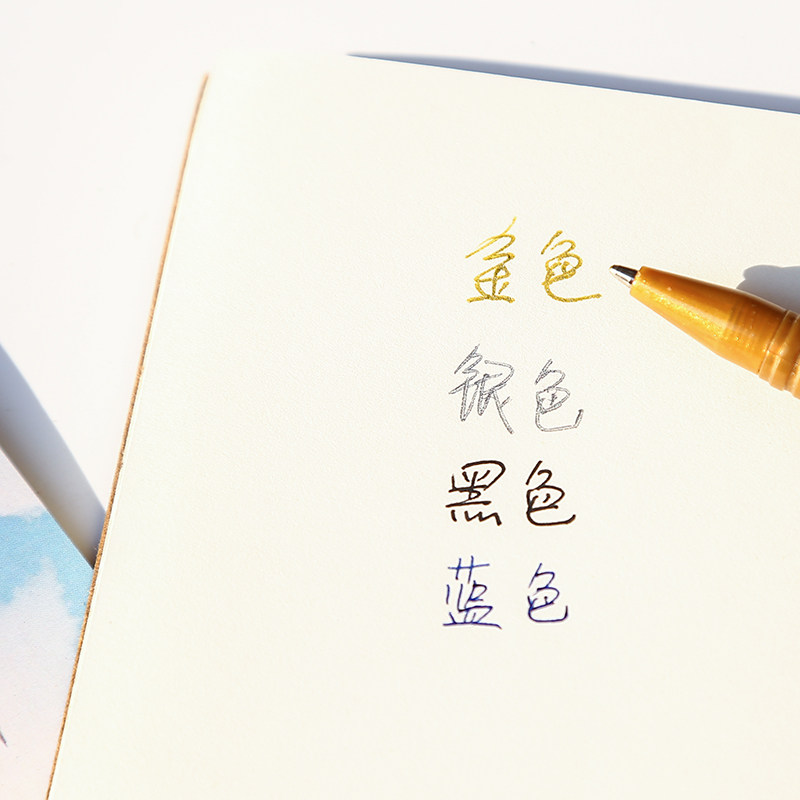 金色
银色
黑色
蓝色